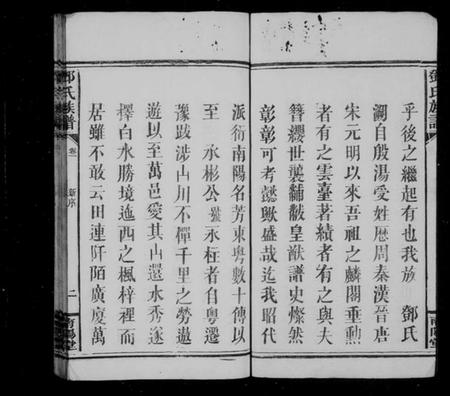 鄧氏族譜
乎後之繼起有也我族 鄧氏
溯自殷湯受姓歷周秦漢晉唐
宋元明以來吾祖之麟閣垂勳
者有之雲臺著績者有之與夫
簪纓世襲黼黻皇猷譜史燦然
彰彰可考懿歟盛哉迄我昭代
派衍南陽名芳東粵數十傳以
至 永彬公 永枉者自粵遷
豫跋涉山川不憚千里之勞遨
遊以至萬邑愛其山還水秀遂
擇白水勝境迤西之楓梓裡而
居雖不敢云田連阡陌廣廈萬
鄧氏族譜 卷 新序 二 南陽堂
南陽堂